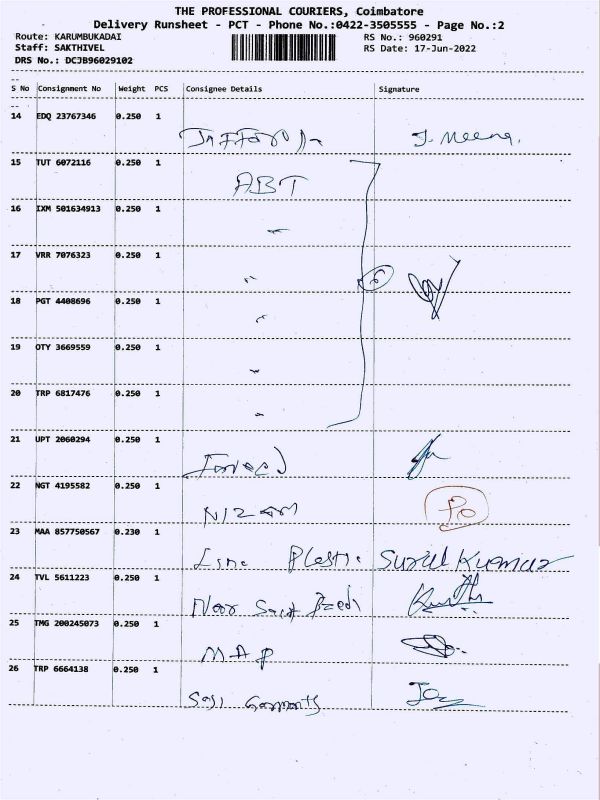 THE PROFESSIONAL COURIERS, Coimbatore
Delivery Runsheet - PCT - Phone No.:0422-3505555 - Page No.:2
Route: KARUMBUKADAI RS No.: 960291
Staff: SAKTHIVEL RS Date: 17-Jun-2022
DRS No.: DCJB96029102
S No Consignment No Weight PCS Consignee Details Signature
14 EDQ 23767346 0.250 1
J. Meena.
15 TUT 6072116 0.250 1
ABT
16 IXM 501634913 0.250 1
17 VRR 7076323 0.250 1
6
18 PGT 4408696 0.250 1
19 OTY 3669559 0.250 1
20 TRP 6817476 0.250 1
21 UPT 2060294 0.250 1
22 NGT 4195582 0.250 1
NIZAM
23 MAA 857750567 0.230 1
24 TVL 5611223 0.250 1
Noor
25 TMG 200245073 0.250 1
MAP
26 TRP 6664138 0.250 1
Garments